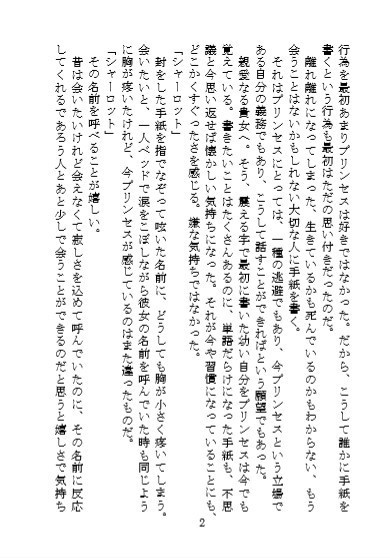 行為を最初あまりプリンセスは好きではなかった。だから、こうして誰かに手紙を
書くという行為も最初はただの思い付きだったのだ。
　離れ離れになってしまった、生きているかも死んでいるのかもわからない、もう
会うことはないかもしれない大切な人に手紙を書く。
　それはプリンセスにとっては、一種の逃避でもあり、今プリンセスという立場で
ある自分の義務でもあり、こうして話すことができればという願望でもあった。
　親愛なる貴女へ。そう、震える字で最初に書いた幼い自分をプリンセスは今でも
覚えている。書きたいことはたくさんあるのに、単語だらけになった手紙も、不思
議と今思い返せば懐かしい気持ちになった。それが今や習慣になっていることにも、
どこかくすぐったさを感じる。嫌な気持ちではなかった。
「シャーロット」
　封をした手紙を指でなぞって呟いた名前に、どうしても胸が小さく疼いてしまう。
会いたいと、一人ベッドで涙をこぼしながら彼女の名前を呼んでいた時も同じよう
に胸が疼いたけれど、今プリンセスが感じているのはまた違ったものだ。
「シャーロット」
　その名前を呼べることが嬉しい。
　昔は会いたいけれど会えなくて寂しさを込めて呼んでいたのに、その名前に反応
してくれるであろう人とあと少しで会うことができるのだと思うと嬉しさで気持ち
2